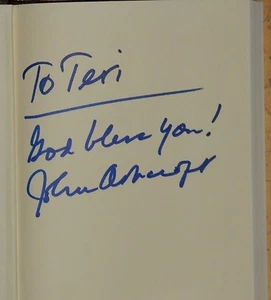 To Teri
God bless you!
John Ashcroft